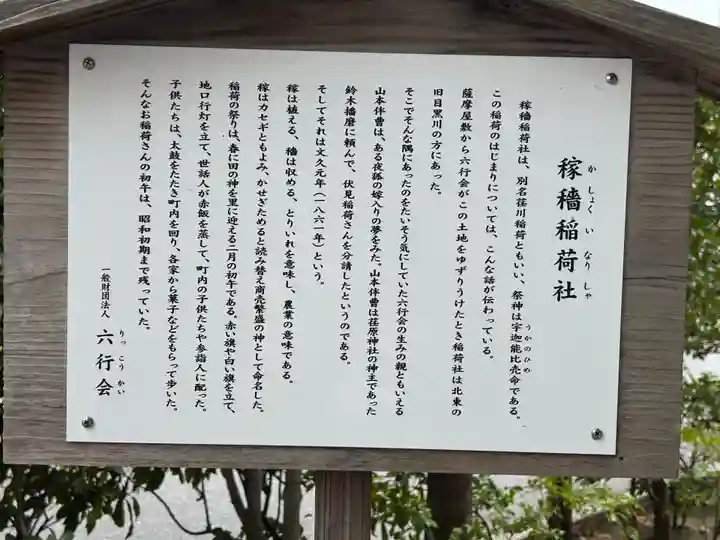 稼穡稲荷社
か しょく い なり しゃ
稼穡稲荷社は、別名荏川稲荷ともいい、祭神は宇迦能比売命である。
うかのひめ
この稲荷のはじまりについては、こんな話が伝わっている。
薩摩屋敷から六行会がこの土地をゆずりうけたとき稲荷社は北東の
旧目黒川の方にあった。
そこでそんな隅にあったのをたいそう気にしていた六行会の生みの親ともいえる
山本伴曹は、ある夜狐の嫁入りの夢をみた。山本伴曹は荏原神社の神主であった
鈴木播磨に頼んで、伏見稲荷さんを分請したというのである。
そしてそれは文久元年（一八六一年）という。
稼は植える、穡は収める、とりいれを意味し、農業の意味である。
稼はカセギともよみ、かせぎためると読み替え商売繁盛の神として命名した。
稲荷の祭りは、春に田の神を里に迎える二月の初午である。赤い旗や白い旗を立て、
地口行灯を立て、世話人が赤飯を蒸して、町内の子供たちや参詣人に配った。
子供たちは、太鼓をたたき町内を回り、各家から菓子などをもらって歩いた。
そんなお稲荷さんの初午は、昭和初期まで残っていた。
一般財団法人 六行会
りっ こう かい